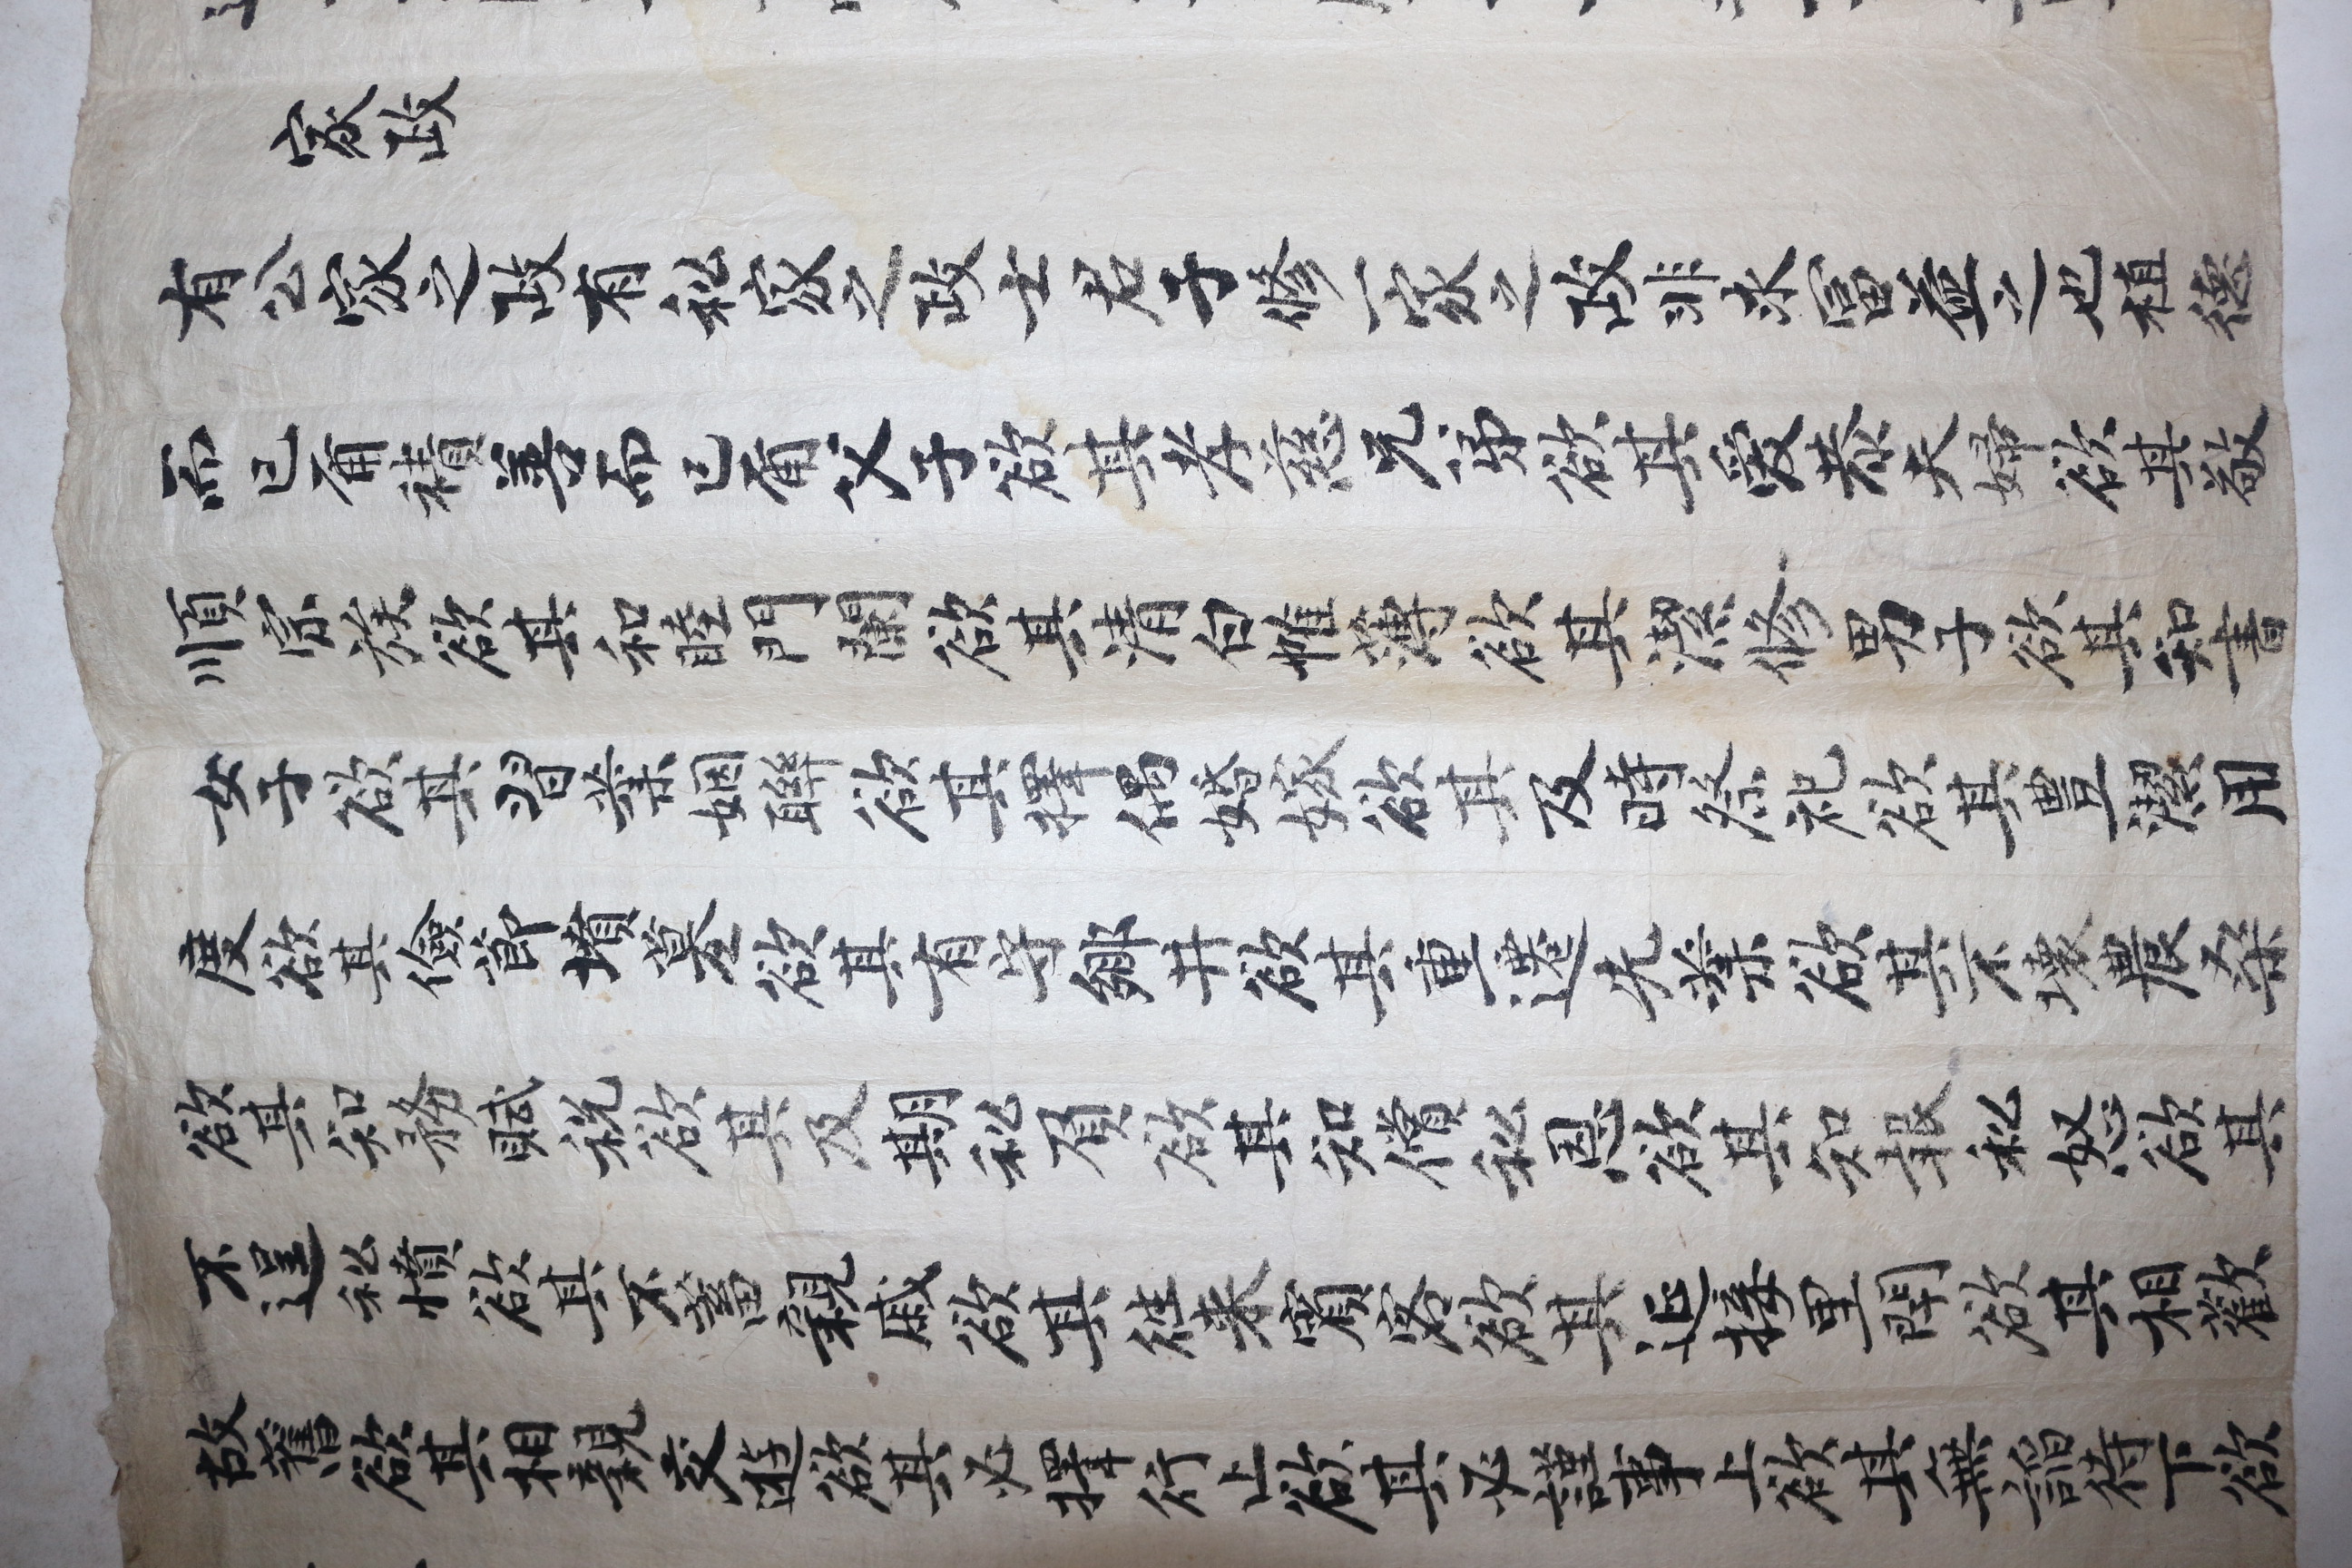 家政
有公家之政有私家之政士君子修一家之政非求富益之也植德
而已爾積善而已爾父子欲其孝慈兄弟欲其愛恭夫婦欲其敬
順宗族欲其和睦門闌欲其清白帷薄欲其潔修男子欲其知書
女子欲其習業姻聯欲其擇偶婚嫁欲其及時祭祀欲其豊潔用
度欲其儉節墳墓欲其有守鄉井欲其重遷先業欲其不壞農桑
欲其知務賦税欲其及期私負欲其知償私恩欲其知報私怒欲其
不逞私憤欲其不蓄親戚欲其往来賓客欲其延接里閈欲其相歡
故舊欲其相親交遊欲其必擇行止欲其必謹事上欲其無諂待下欲